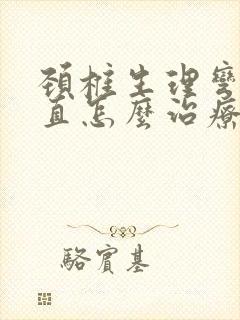 頸柱生理彎
直怎麼治療
駱賓基